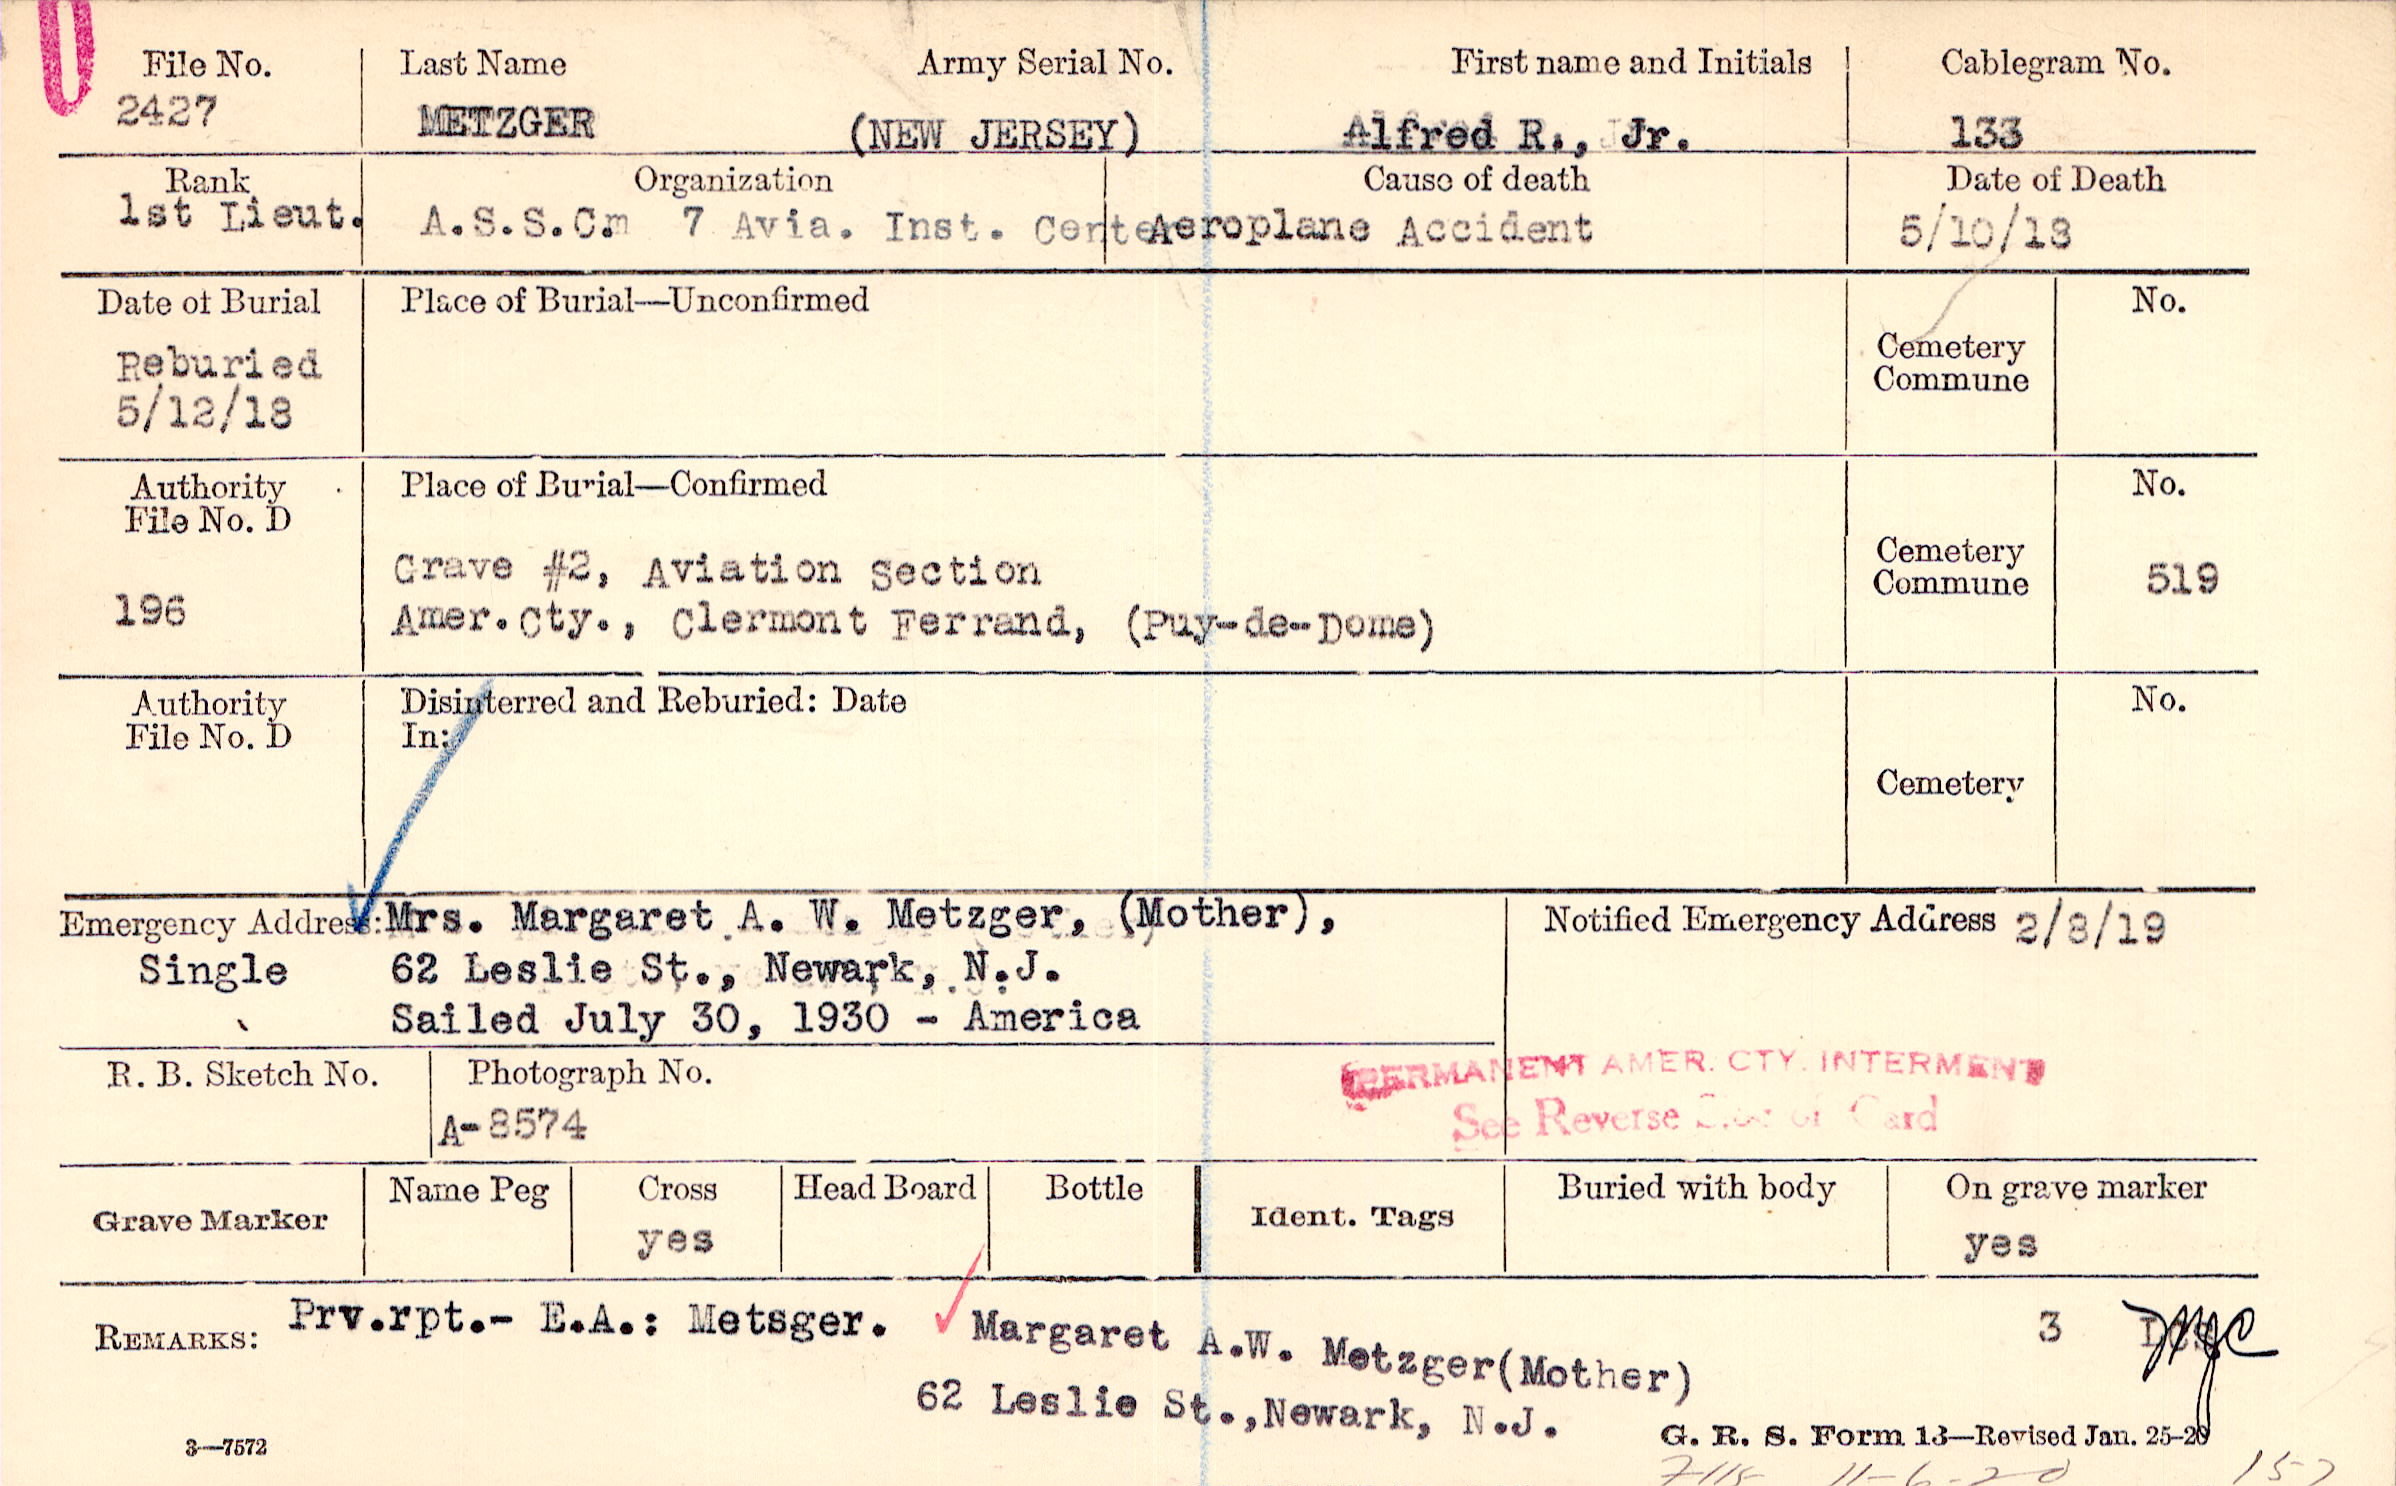 File No. Last Name Army Serial No. First name and Initials Cablegram No.
2427 METZGER (NEW JERSEY) Alfred R., Jr. 133
Rank Organization Cause of death Date of Death
1st Lieut. A.S.S.C. 7 Avia. Inst. Center Aeroplane Accident 5/10/18
Date of Burial Place of Burial—Unconfirmed No.
Reburied
5/12/18
Cemetery
Commune
Authority Place of Burial—Confirmed No.
File No. D
196
Grave #2, Aviation Section
Amer.Cty., Clermont Ferrand, (Puy-de-Dome)
Cemetery
Commune
519
Authority Disinterred and Reburied: Date No.
File No. D In:
Cemetery
Emergency Address: Mrs. Margaret A. W. Metzger, (Mother), Notified Emergency Address 2/8/19
Single 62 Leslie St., Newark, N.J.
Sailed July 30, 1930 - America
R. B. Sketch No. Photograph No.
A-8574
PERMANENT AMER. CTY. INTERMENT
See Reverse Side of Card
Grave Marker Name Peg Cross Head Board Bottle Ident. Tags Buried with body On grave marker
yes yes
REMARKS: Prv.rpt.- E.A.: Metsger. Margaret A.W. Metzger(Mother) 3
62 Leslie St.,Newark, N.J.
3—7572 G. R. S. Form 13—Revised Jan. 25-20
11-6-20 157